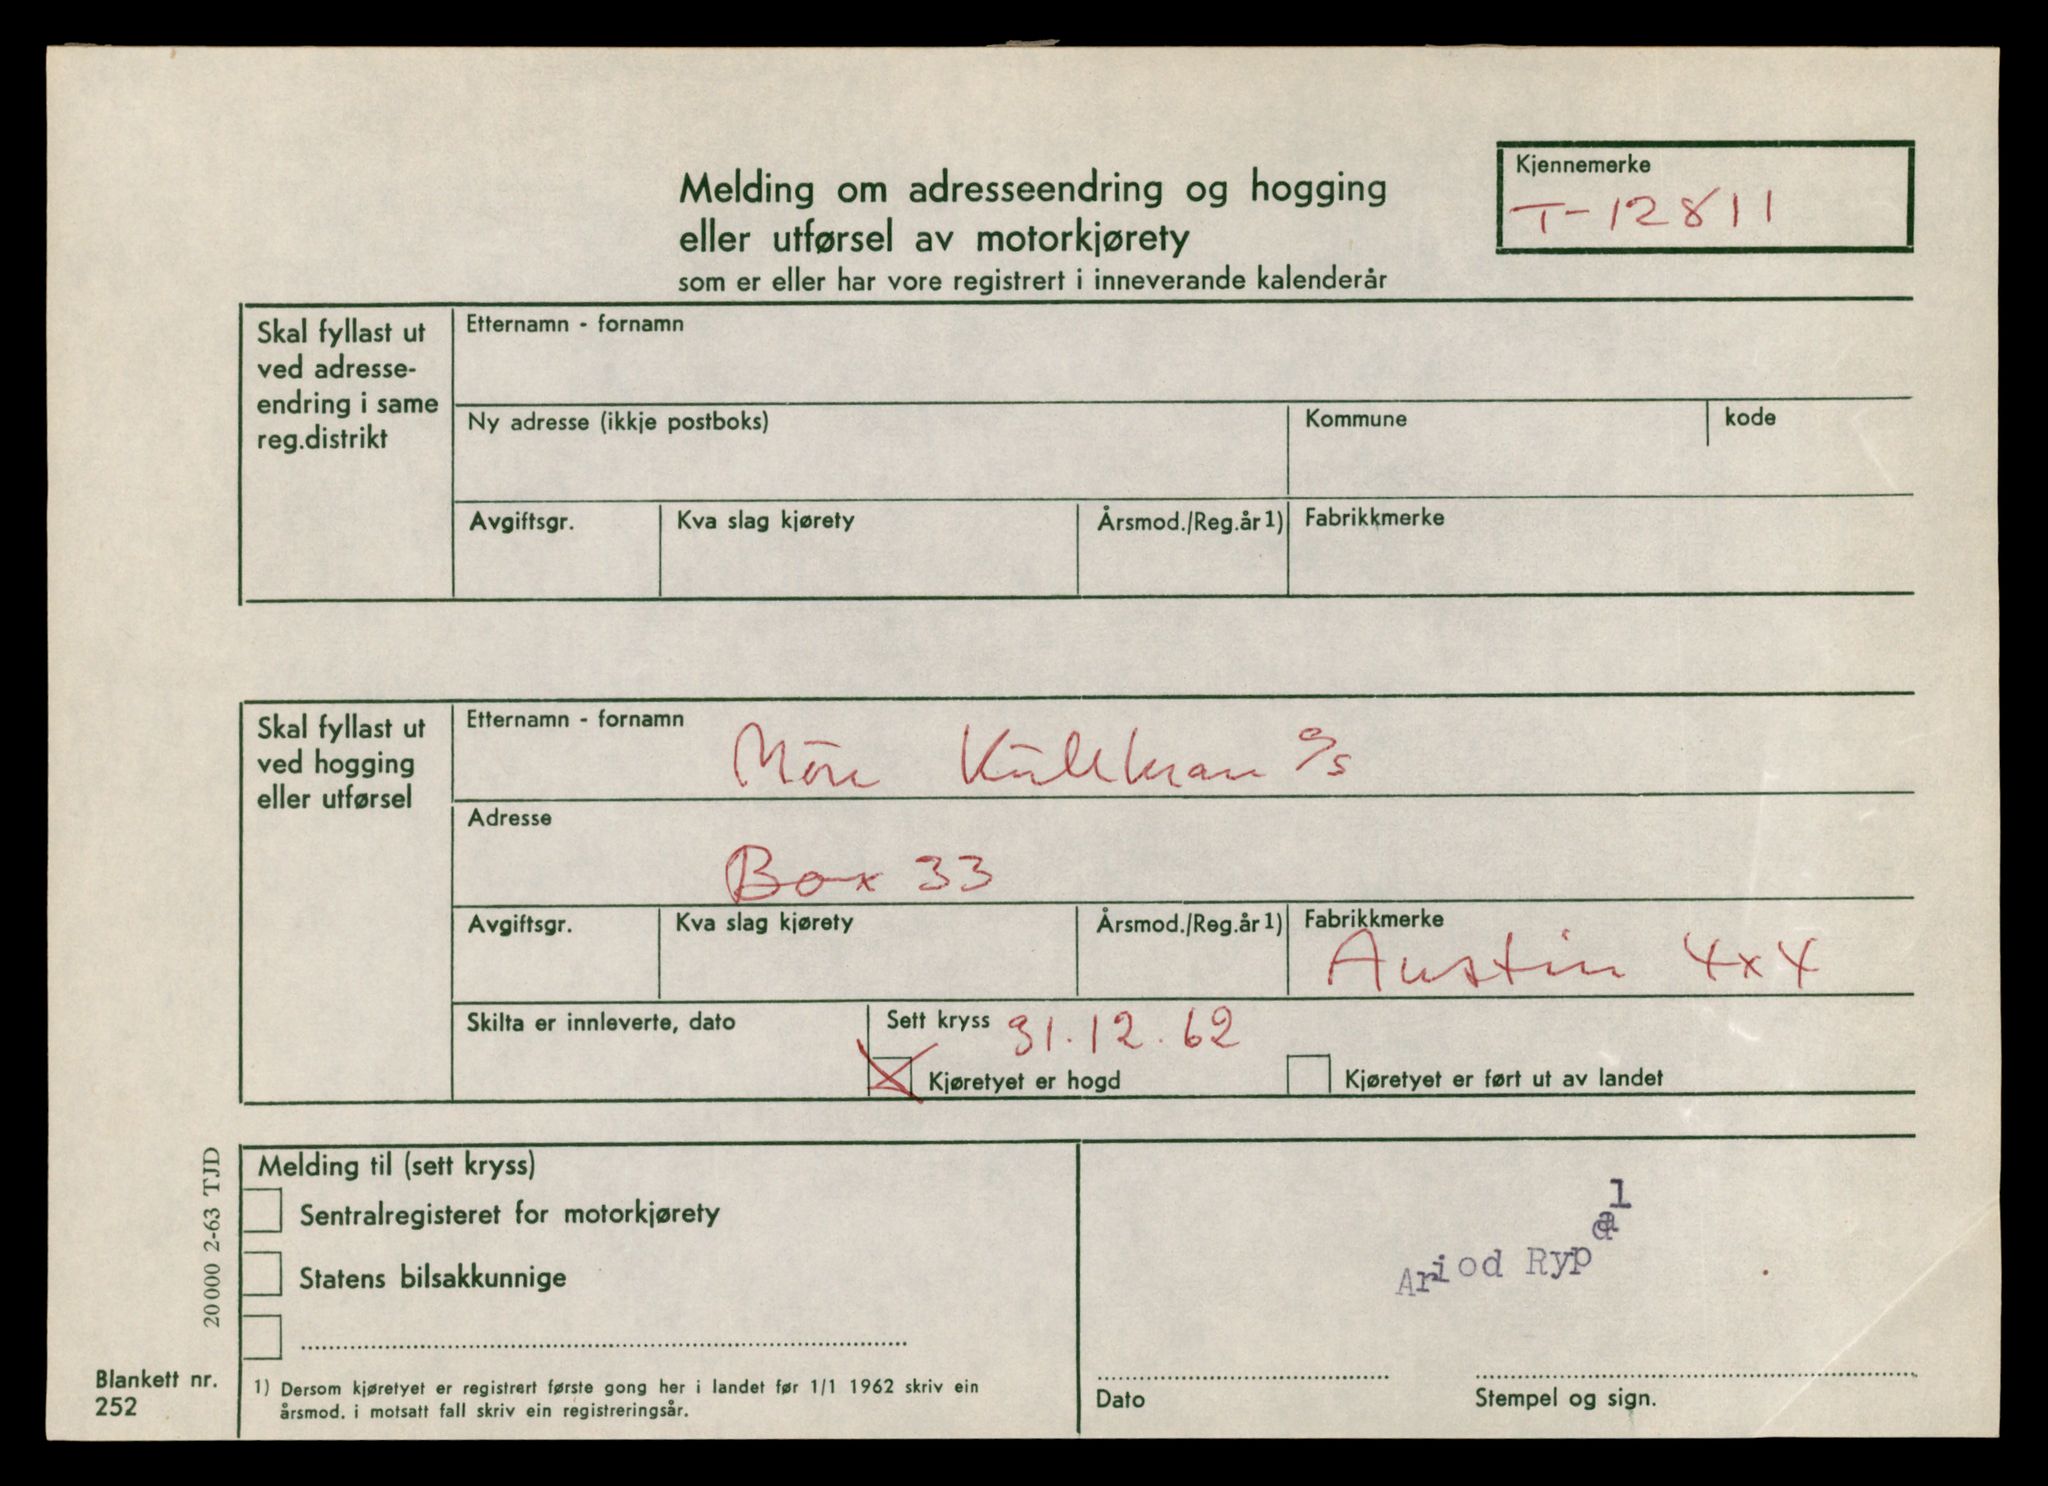 Melding om adresseendring og hogging
eller utførsel av motorkjørety
som er eller har vore registrert i inneverande kalenderår
Kjennemerke
T-12811
Skal fyllast ut
ved adresse-
endring i same
reg.distrikt
Etternamn - fornamn
Ny adresse (ikkje postboks)
Kommune
kode
Avgiftsgr.
Kva slag kjørety
Årsmod./Reg.år 1)
Fabrikkmerke
Skal fyllast ut
ved hogging
eller utførsel
Etternamn - fornamn
a/s
Adresse
Box 33
Avgiftsgr.
Kva slag kjørety
Årsmod./Reg.år 1)
Fabrikkmerke
Austin 4x4
Skilta er innleverte, dato
Sett kryss
31.12.62
Kjøretyet er hogd
Kjøretyet er ført ut av landet
20 000 2-63 TJD
Melding til (sett kryss)
Sentralregisteret for motorkjørety
Statens bilsakkunnige
Blankett nr.
252
1) Dersom kjøretyet er registrert første gong her i landet før 1/1 1962 skriv ein
årsmod. i motsatt fall skriv ein registreringsår.
Ariod Rypdal
Dato
Stempel og sign.